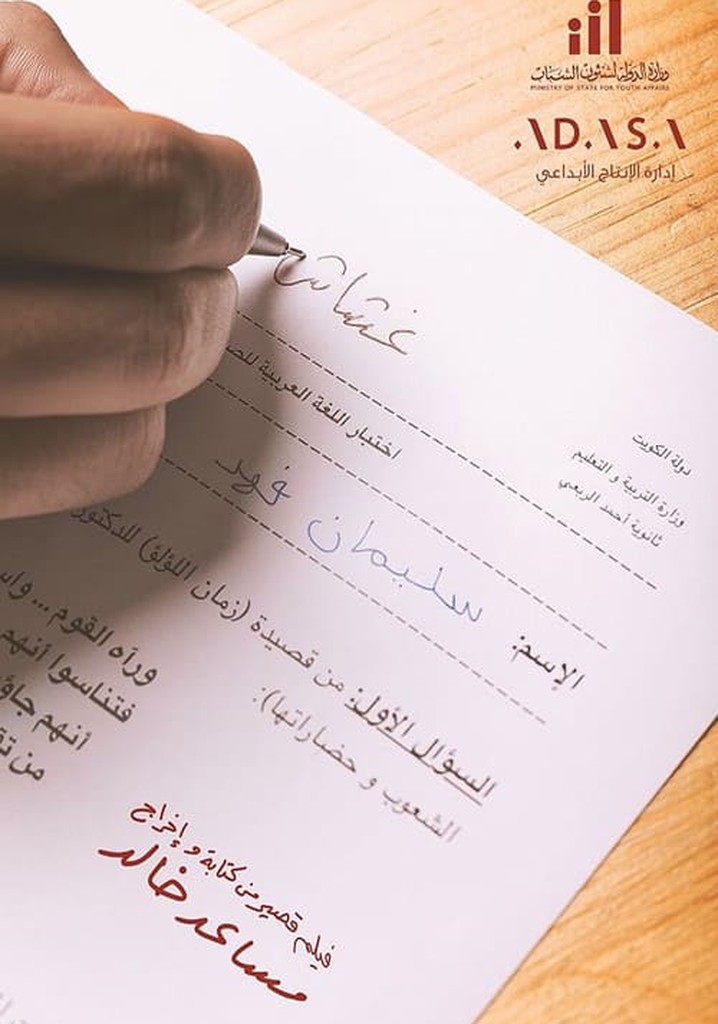 وزارة الدولة لشئون الشباب
MINISTRY OF STATE FOR YOUTH AFFAIRS
.\D.\S.\
إدارة الإنتاج الأبداعي
غشاش
دولة الكويت
وزارة التربية و التعليم
ثانوية أحمد الربعي
اختبار اللغة العربية
الإسم: سليمان فهد
السؤال الأول: من قصيدة (زمان اللؤلؤ) للدكتور
الشعوب و حضاراتها):
ورأه القوم ...
فتناسوا أنهم
أنهم
من
فيلم قصير من كتابة و إخراج
مساعد خالد